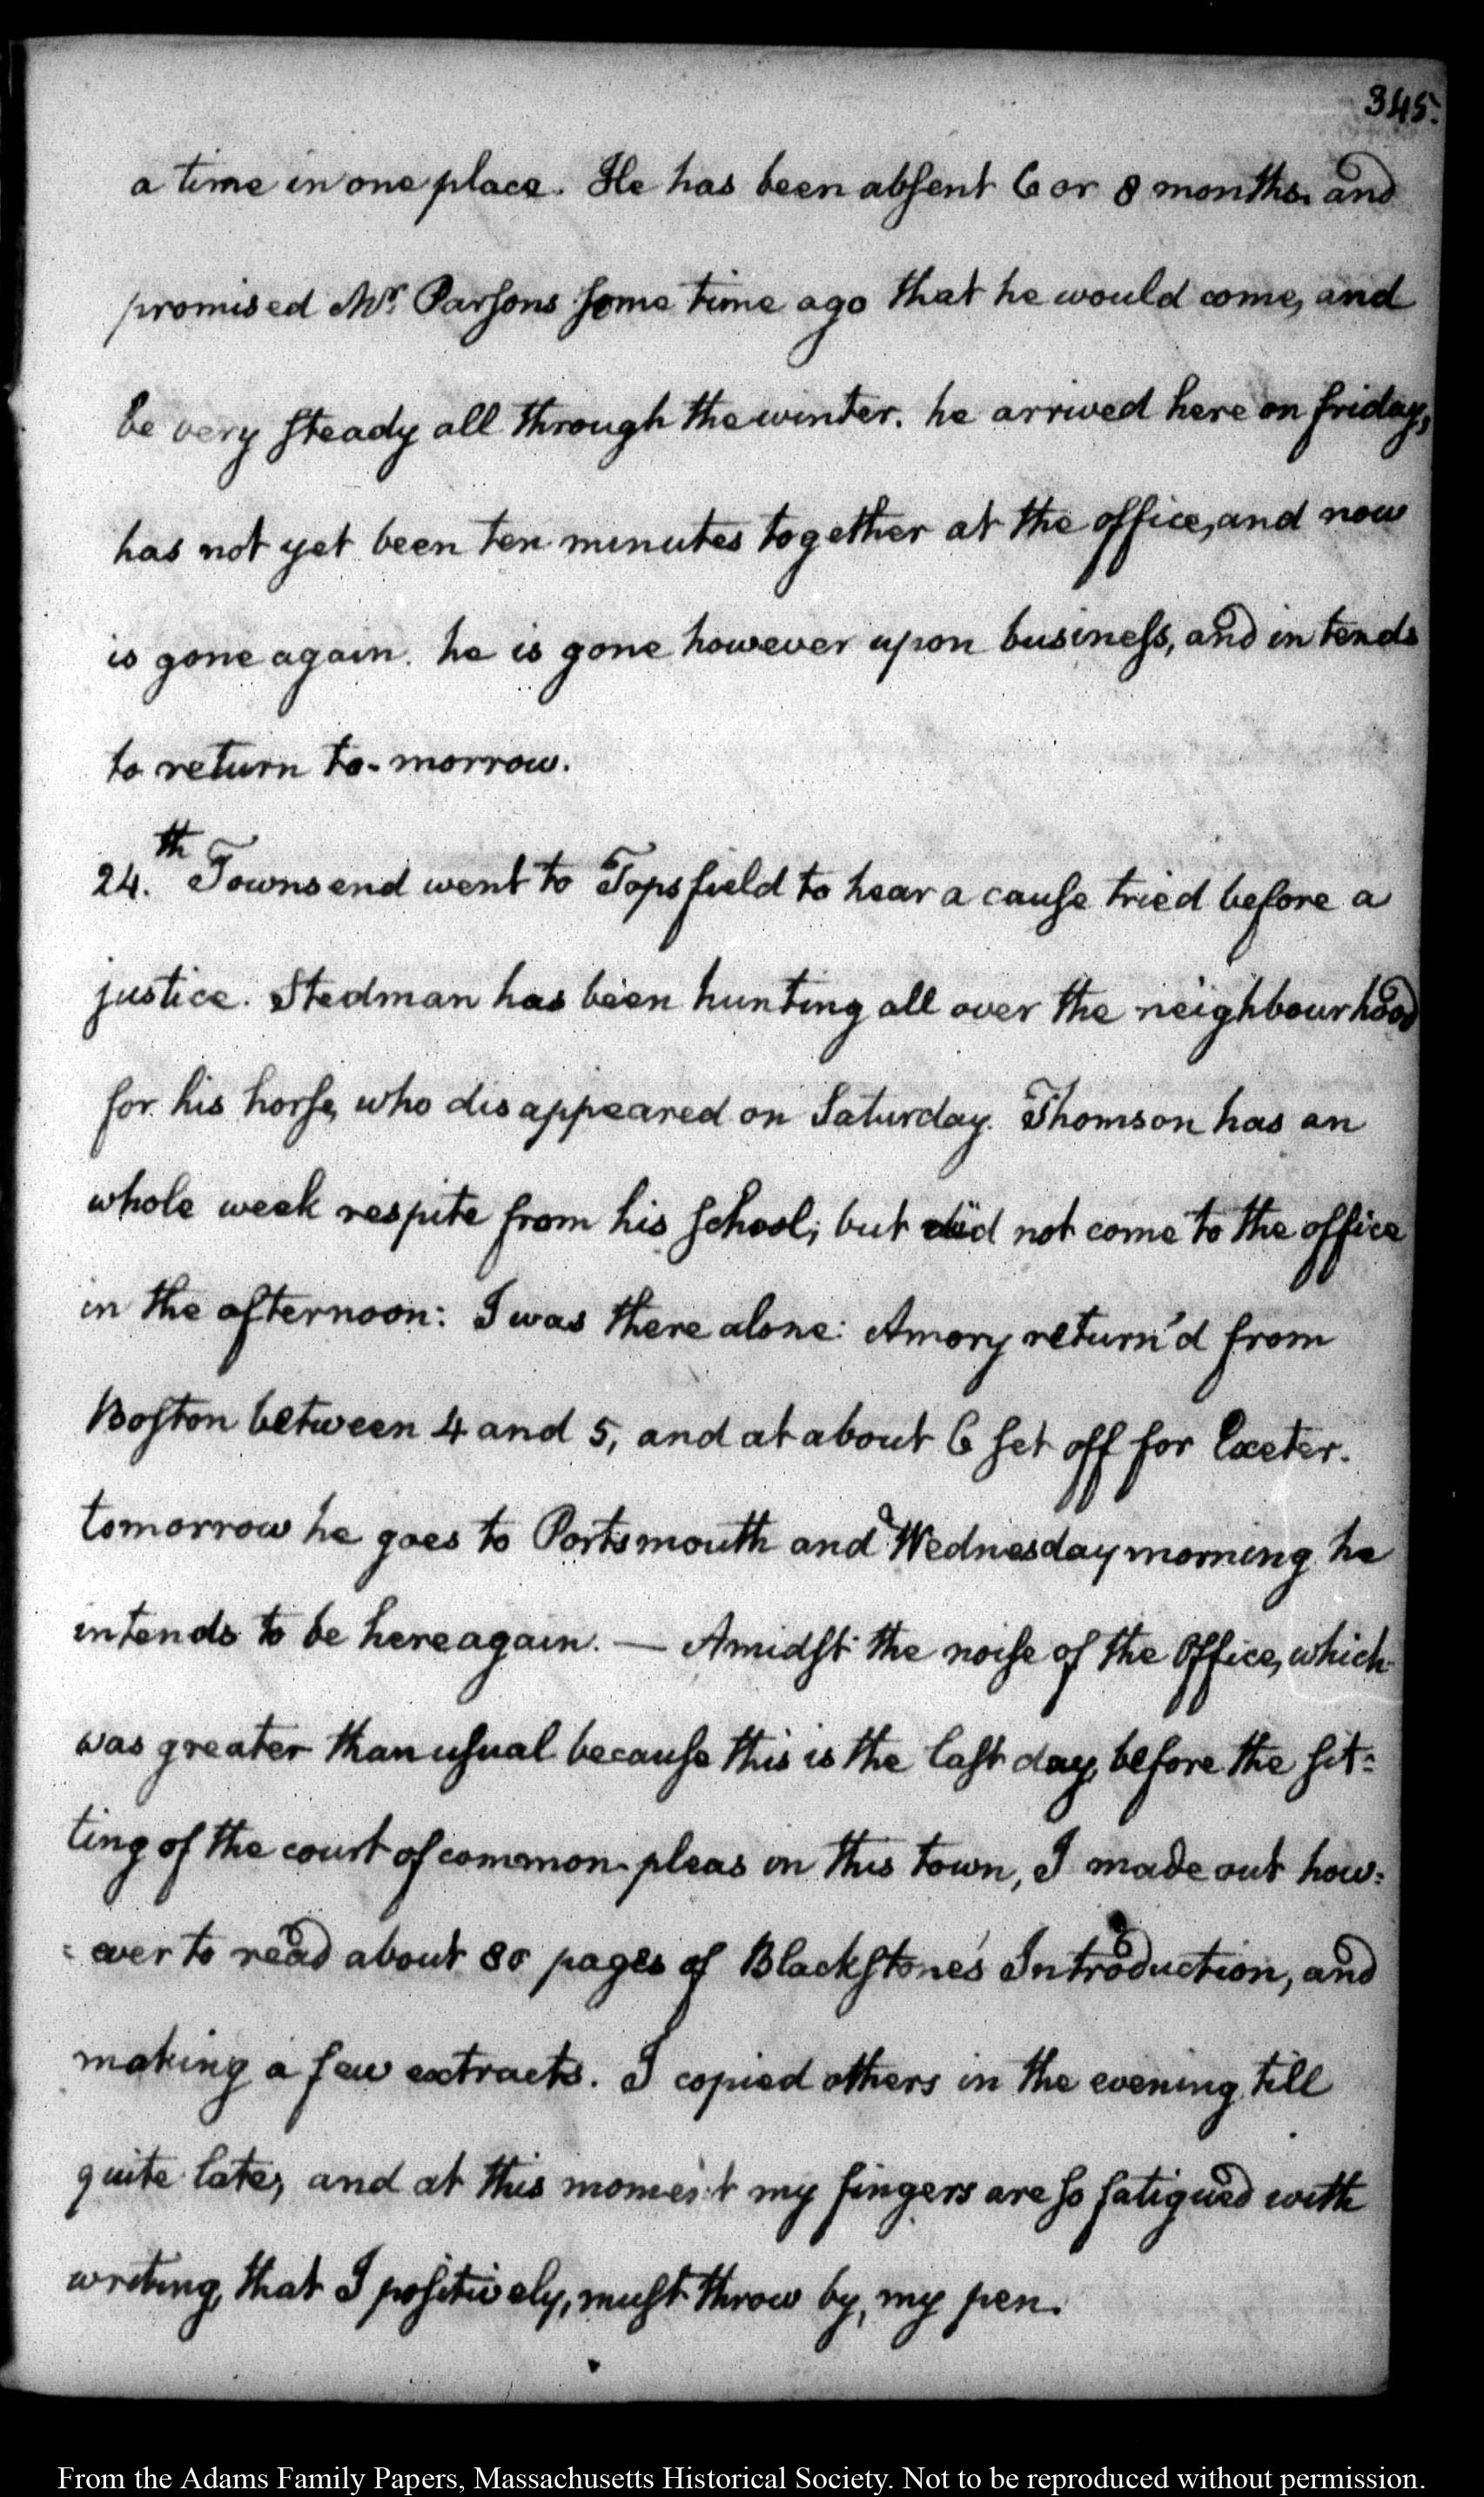 345.
a time in one place. He has been absent 6 or 8 months. and
promised Mr. Parsons some time ago that he would come, and
be very steady all through the winter. he arrived here on friday,
has not yet been ten minutes together at the office, and now
is gone again. he is gone however upon business, and intends
to return to-morrow.
24.th Townsend went to Topsfield to hear a cause tried before a
justice. Stedman has been hunting all over the neighbourhood
for his horse, who disappeared on Saturday. Thomson has an
whole week respite from his school; but did not come to the office
in the afternoon: I was there alone: Amory return'd from
Boston between 4 and 5, and at about 6 set off for Exeter.
tomorrow he goes to Portsmouth and Wednesday morning he
intends to be here again. — Amidst the noise of the Office, which
was greater than usual because this is the last day, before the sit=
ting of the court of common pleas in this town, I made out how=
=ever to read about 80 pages of Blackstone's Introduction, and
making a few extracts. I copied others in the evening till
quite late, and at this moment my fingers are so fatigued with
writing, that I positively, must throw by, my pen.
From the Adams Family Papers, Massachusetts Historical Society. Not to be reproduced without permission.